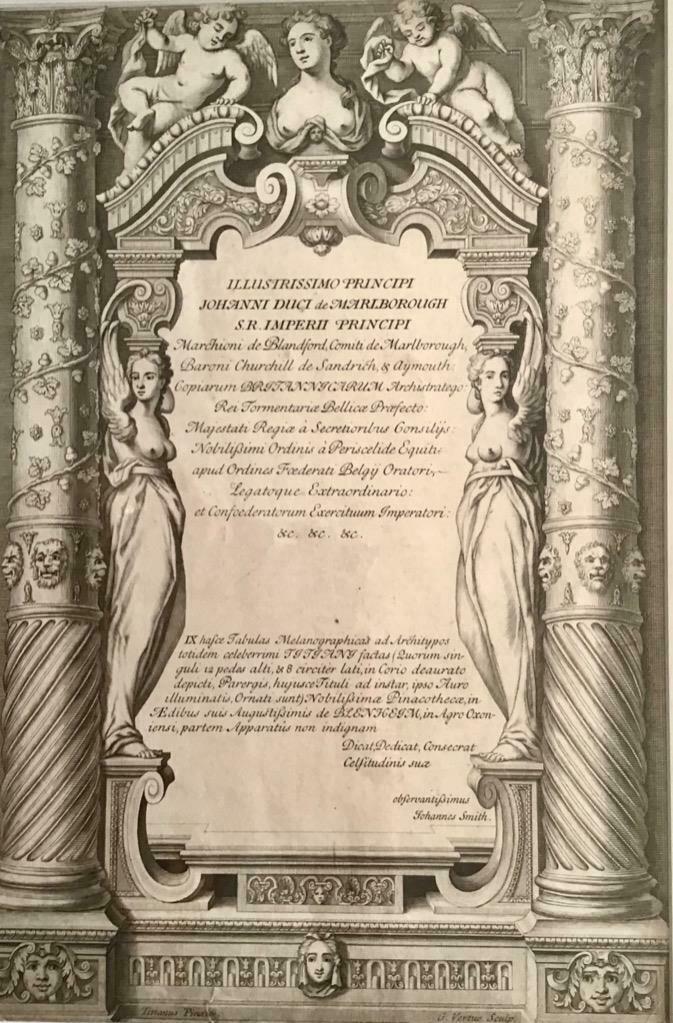 ILLUSTRISSIMO PRINCIPI
JOHANNI DUCI de MARLBOROUGH
S.R. IMPERII PRINCIPI
Marchioni de Blandford, Comiti de Marlborough,
Baroni Churchill de Sandrich, & Aymouth:
Copiarum BRITANNICARUM Archistratego:
Rei Tormentariæ Bellicæ Præfecto:
Majestati Regiæ à Secretioribus Consilijs:
Nobilißimi Ordinis à Periscelide Equiti:
apud Ordines Fœderati Belgij Oratori,
Legatoque Extraordinario:
et Confœderatorum Exercituum Imperatori:
&c. &c. &c.
IX hasce Tabulas Melanographicas ad Architypos
totidem celeberrimi TITIANI factas (Quorum sin-
guli 12 pedes alti, & 8 circiter lati, in Corio deaurato
depicti, Parergis, hujusce Tituli ad instar, ipso Auro
illuminatis, Ornati sunt) Nobilißimæ Pinacothecæ, in
Ædibus suis Augustißimis de BLENHEIM, in Agro Oxon-
iensi, partem Apparatûs non indignam
Dicat, Dedicat, Consecrat
Celsitudinis suæ
observantißimus
Johannes Smith.
Titianus
G. Vertue Sculp.